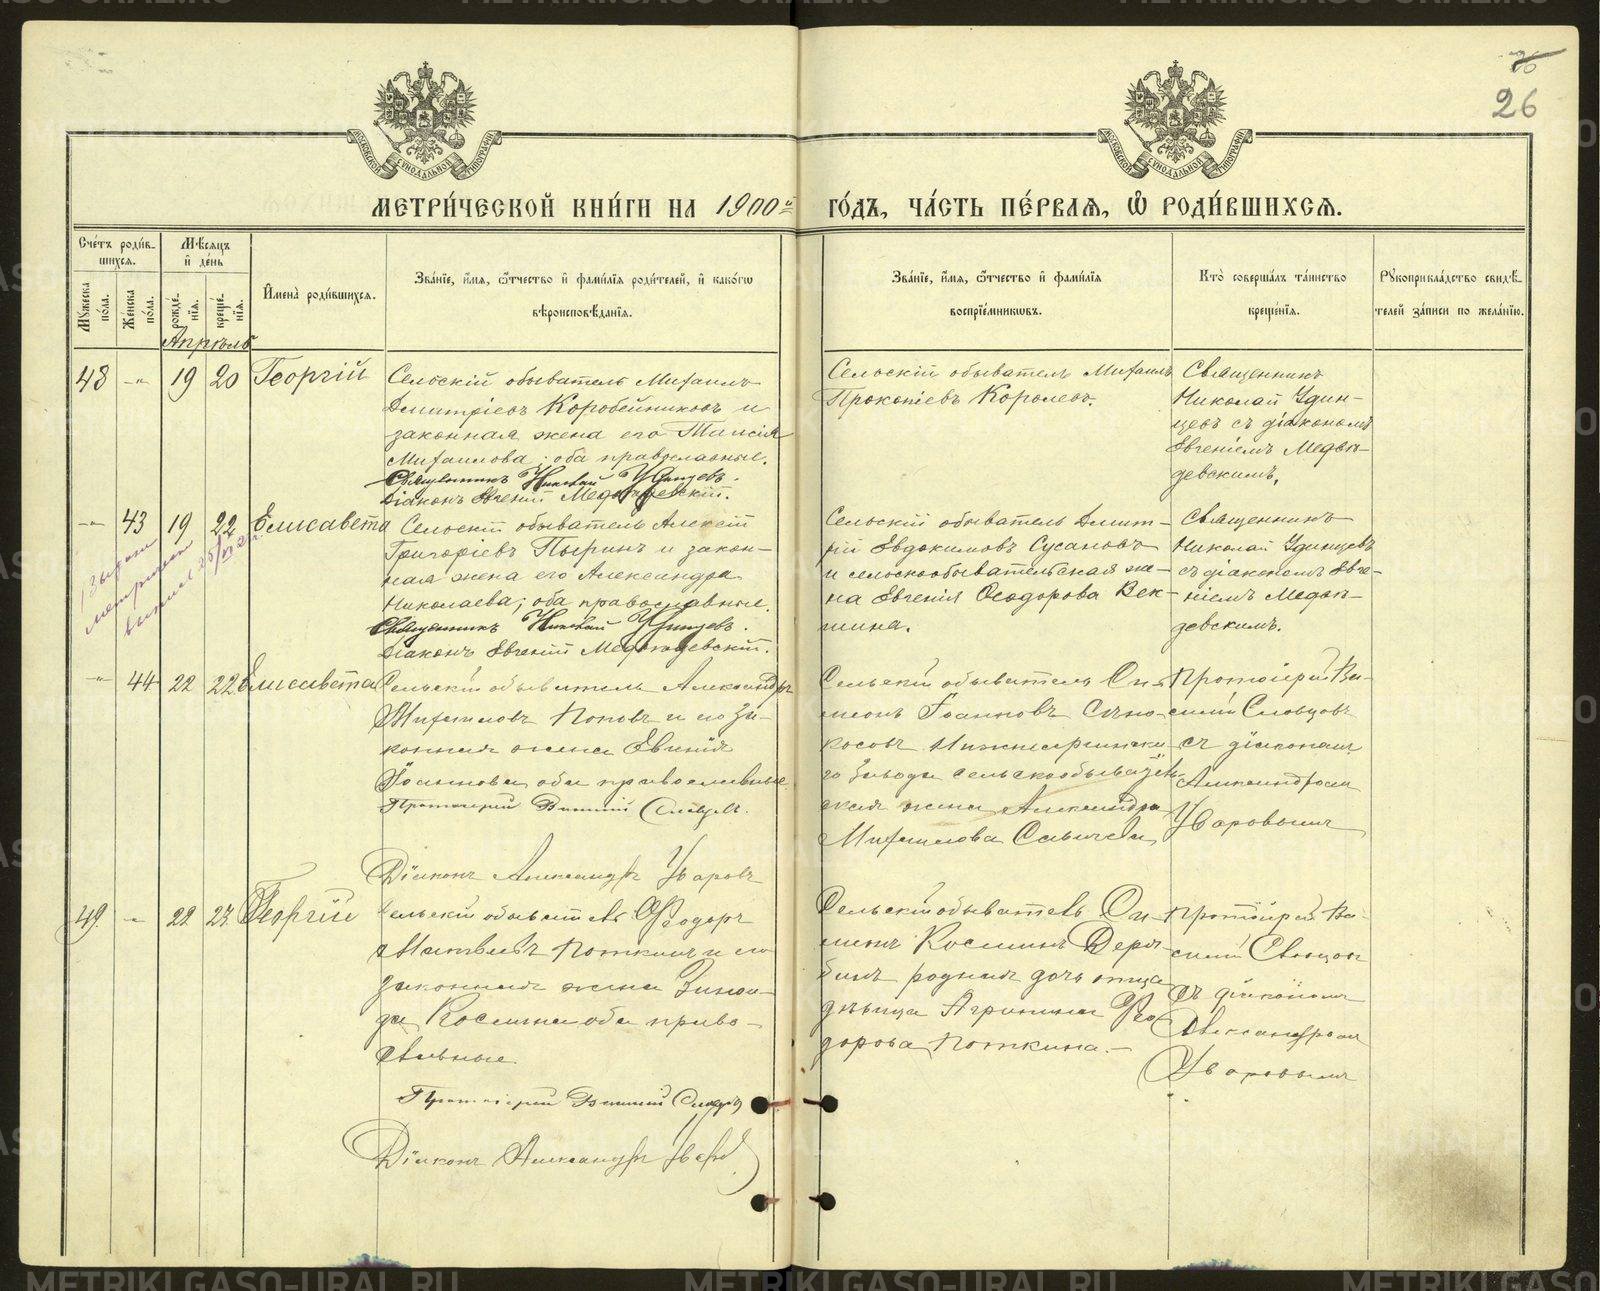 26
МЕТРИ́ЧЕСКОЙ КНИ́ГИ НА 1900й ГО́ДЪ, ЧА́СТЬ ПЕ́РВАѦ, Ѡ҆ РОДИ́ВШИХСѦ.
Сче́тъ роди́в-
шихсѧ.
Мѣ́сѧцъ
и҆ де́нь
И҆мена̀ роди́вшихсѧ.
Зва́нїе, и҆́мѧ, ѻ҆́тчество и҆ фами́лїѧ роди́телей, и҆ како́гѡ
вѣроисповѣ́данїѧ.
Зва́нїе, и҆́мѧ, ѻ҆́тчество и҆ фами́лїѧ
воспрїе́мникѡвъ.
Кто̀ соверша́лъ та́инство
креще́нїѧ.
Рꙋкоприкла́дство свидѣ́-
телей за́писи по жела́нїю.
Мꙋ́жеска
по́ла.
Же́нска
по́ла.
рожде́-
нїѧ.
креще́-
нїѧ.
Апрѣль
48 -"- 19 20 Георгій
Сельскій обыватель Михаилъ
Димитріевъ Коробейниковъ и
законная жена его Таисія
Михаилова; оба православные.
Священникъ Николай Удинцевъ.
Діаконъ Евгеній Медвѣдевскій.
Сельскій обыватель Михаилъ
Прокопіевъ Королевъ.
Священникъ
Николай Удин-
цевъ съ діакономъ
Евгеніемъ Медвѣ-
девскимъ.
-"- 43 19 22 Елисавета
Сельскій обыватель Алексій
Григоріевъ Пыринъ и закон-
ная жена его Александра
Николаева; оба православные.
Священникъ Николай Удинцевъ.
Діаконъ Евгеній Медвѣдевскій.
Сельскій обыватель Димит-
рій Евдокимовъ Сусановъ
и сельскообывательская же-
на Евгенія Ѳеодорова Век-
шина.
Священникъ
Николай Удинцевъ
съ діакономъ Евге-
ніемъ Медвѣ-
девскимъ.
-"- 44 22 22 Елисавета
Сельскій обыватель Александръ
Михаиловъ Поповъ и его за-
конная жена Евгенія
Іоаннова оба православные
Протоіерей Василій Словцовъ.
Діаконъ Александръ Уваровъ
Сельскій обыватель Си-
меонъ Іоанновъ Сѣно-
косовъ Нижнесергинска-
го завода сельскообыватель-
ская жена Александра
Михаилова
Протоіерей Ва-
силій Словцовъ
съ діакономъ
Александромъ
Уваровымъ
49. -"- 22 23 Георгій
Сельскій обыватель Ѳеодоръ
Матвѣевъ Поткинъ и его
законная жена Зинаи-
да Косьмина оба право-
славные.
Протоіерей Василій Словцовъ
Діаконъ Александръ Уваровъ
Сельскій обыватель Си-
меонъ Косминъ Деря-
бинъ родная дочь отца
дѣвица Агрипина Ѳео-
дорова Поткина.
Протоіерей Ва-
силій Словцовъ
съ діакономъ
Александромъ
Уваровымъ
METRIKI.GASO-URAL.RU